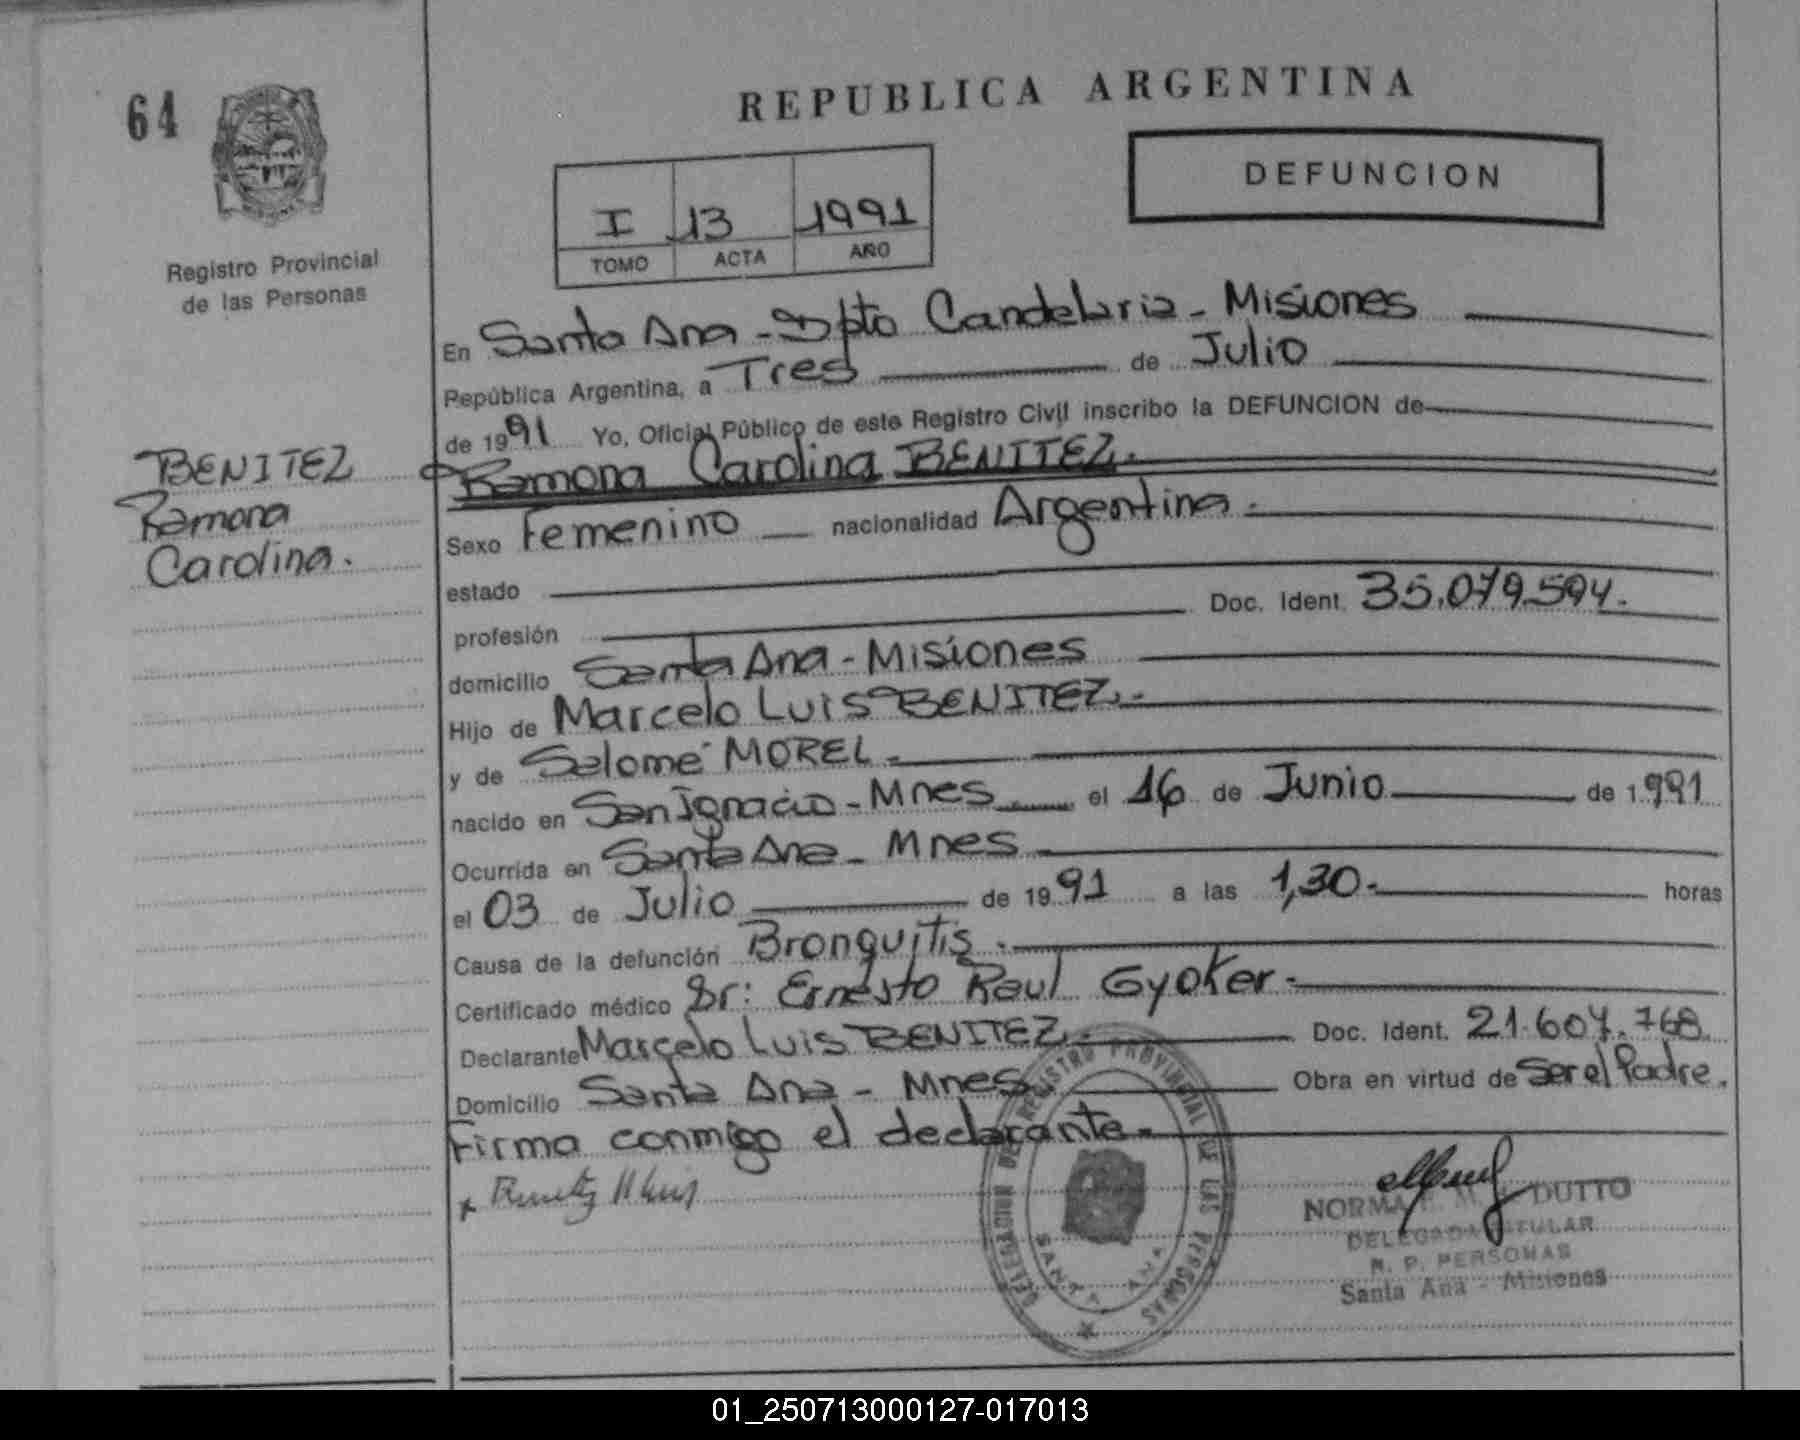 64
REPUBLICA ARGENTINA
DEFUNCION
I 13 1991
TOMO ACTA AÑO
Registro Provincial
de las Personas
En Santa Ana - Dpto Candelaria - Misiones
República Argentina, a Tres de Julio
de 1991 Yo, Oficial Público de este Registro Civil inscribo la DEFUNCION de
Ramona Carolina BENITEZ.
BENITEZ
Ramona
Carolina.
Sexo Femenino nacionalidad Argentina.
estado
profesión Doc. Ident. 35.079.594.
domicilio Santa Ana - Misiones
Hijo de Marcelo Luis BENITEZ.-
y de Salomé MOREL.
nacido en San Ignacio - Mnes el 16 de Junio de 1.991
Ocurrida en Santa Ana - Mnes
el 03 de Julio de 1991 a las 1,30.- horas
Causa de la defunción Bronquitis.
Certificado médico Dr: Ernesto Raul Gyoker.-
Declarante Marcelo Luis BENITEZ.- Doc. Ident. 21.607.768
Domicilio Santa Ana - Mnes Obra en virtud de Ser el Padre.
Firma conmigo el declarante.
DELEGACION DEL REGISTRO PROVINCIAL DE LAS PERSONAS
SANTA ANA
NORMA DUTTO
DELEGADA TITULAR
R. P. PERSONAS
Santa Ana - Misiones
01_250713000127-017013